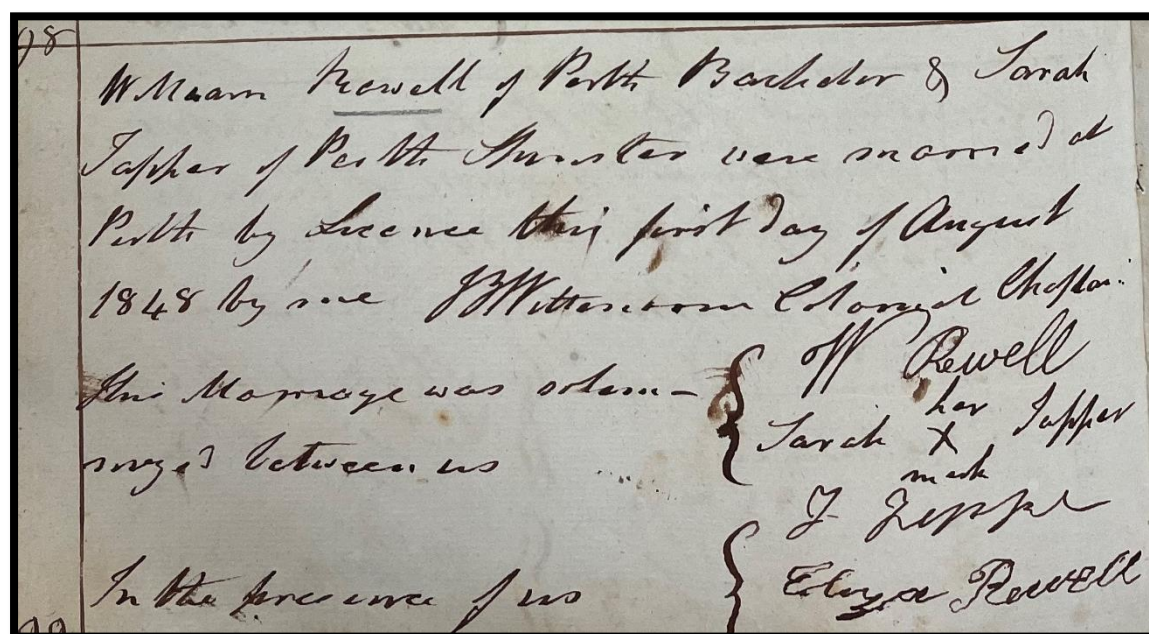 98
William Rewell of Perth Bachelor & Sarah
Tapper of Perth Spinster were married at
Perth by Licence this first day of August
1848 by me JBWittenoom Colonial Chaplain
This Marriage was solem-
nized between us
W Rewell
Sarah her X mark Tapper
In the presence of us
Eliza Rewell
99